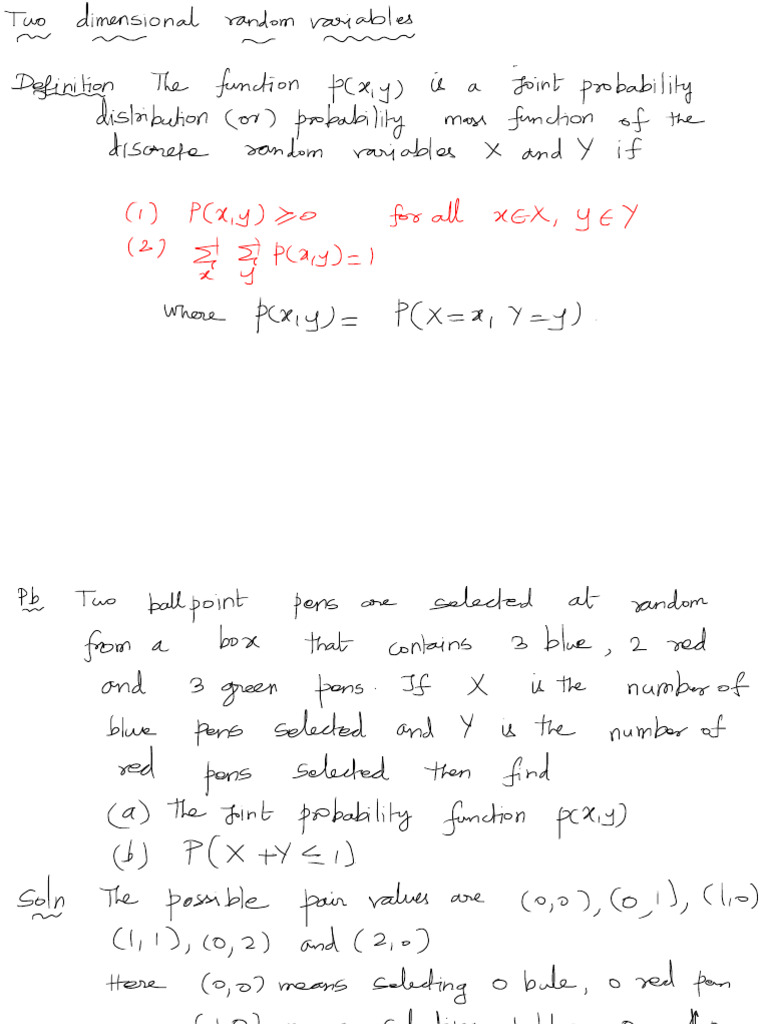 Two dimensional random variables
Definition The function p(x,y) is a Joint probability
distribution (or) probability mass function of the
discrete random variables X and Y if
(1) P(x,y) ≥ 0 for all x∈X, y∈Y
(2) Σx Σy P(x,y) = 1
where p(x,y) = P(X=x, Y=y).
Pb Two ball point pens are selected at random
from a box that contains 3 blue, 2 red
and 3 green pens. If X is the number of
blue pens selected and Y is the number of
red pens selected then find
(a) The Joint probability function p(x,y)
(b) P(X+Y ≤ 1)
Soln The possible pair values are (0,0), (0,1), (1,0)
(1,1), (0,2) and (2,0)
Here (0,0) means selecting 0 bule, 0 red pen